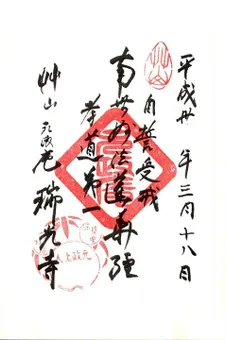 平成廿 年三月十八日
自誓受戒
南無妙法蓮華経
孝道第一
艸山 元政庵 瑞光寺
元政上人